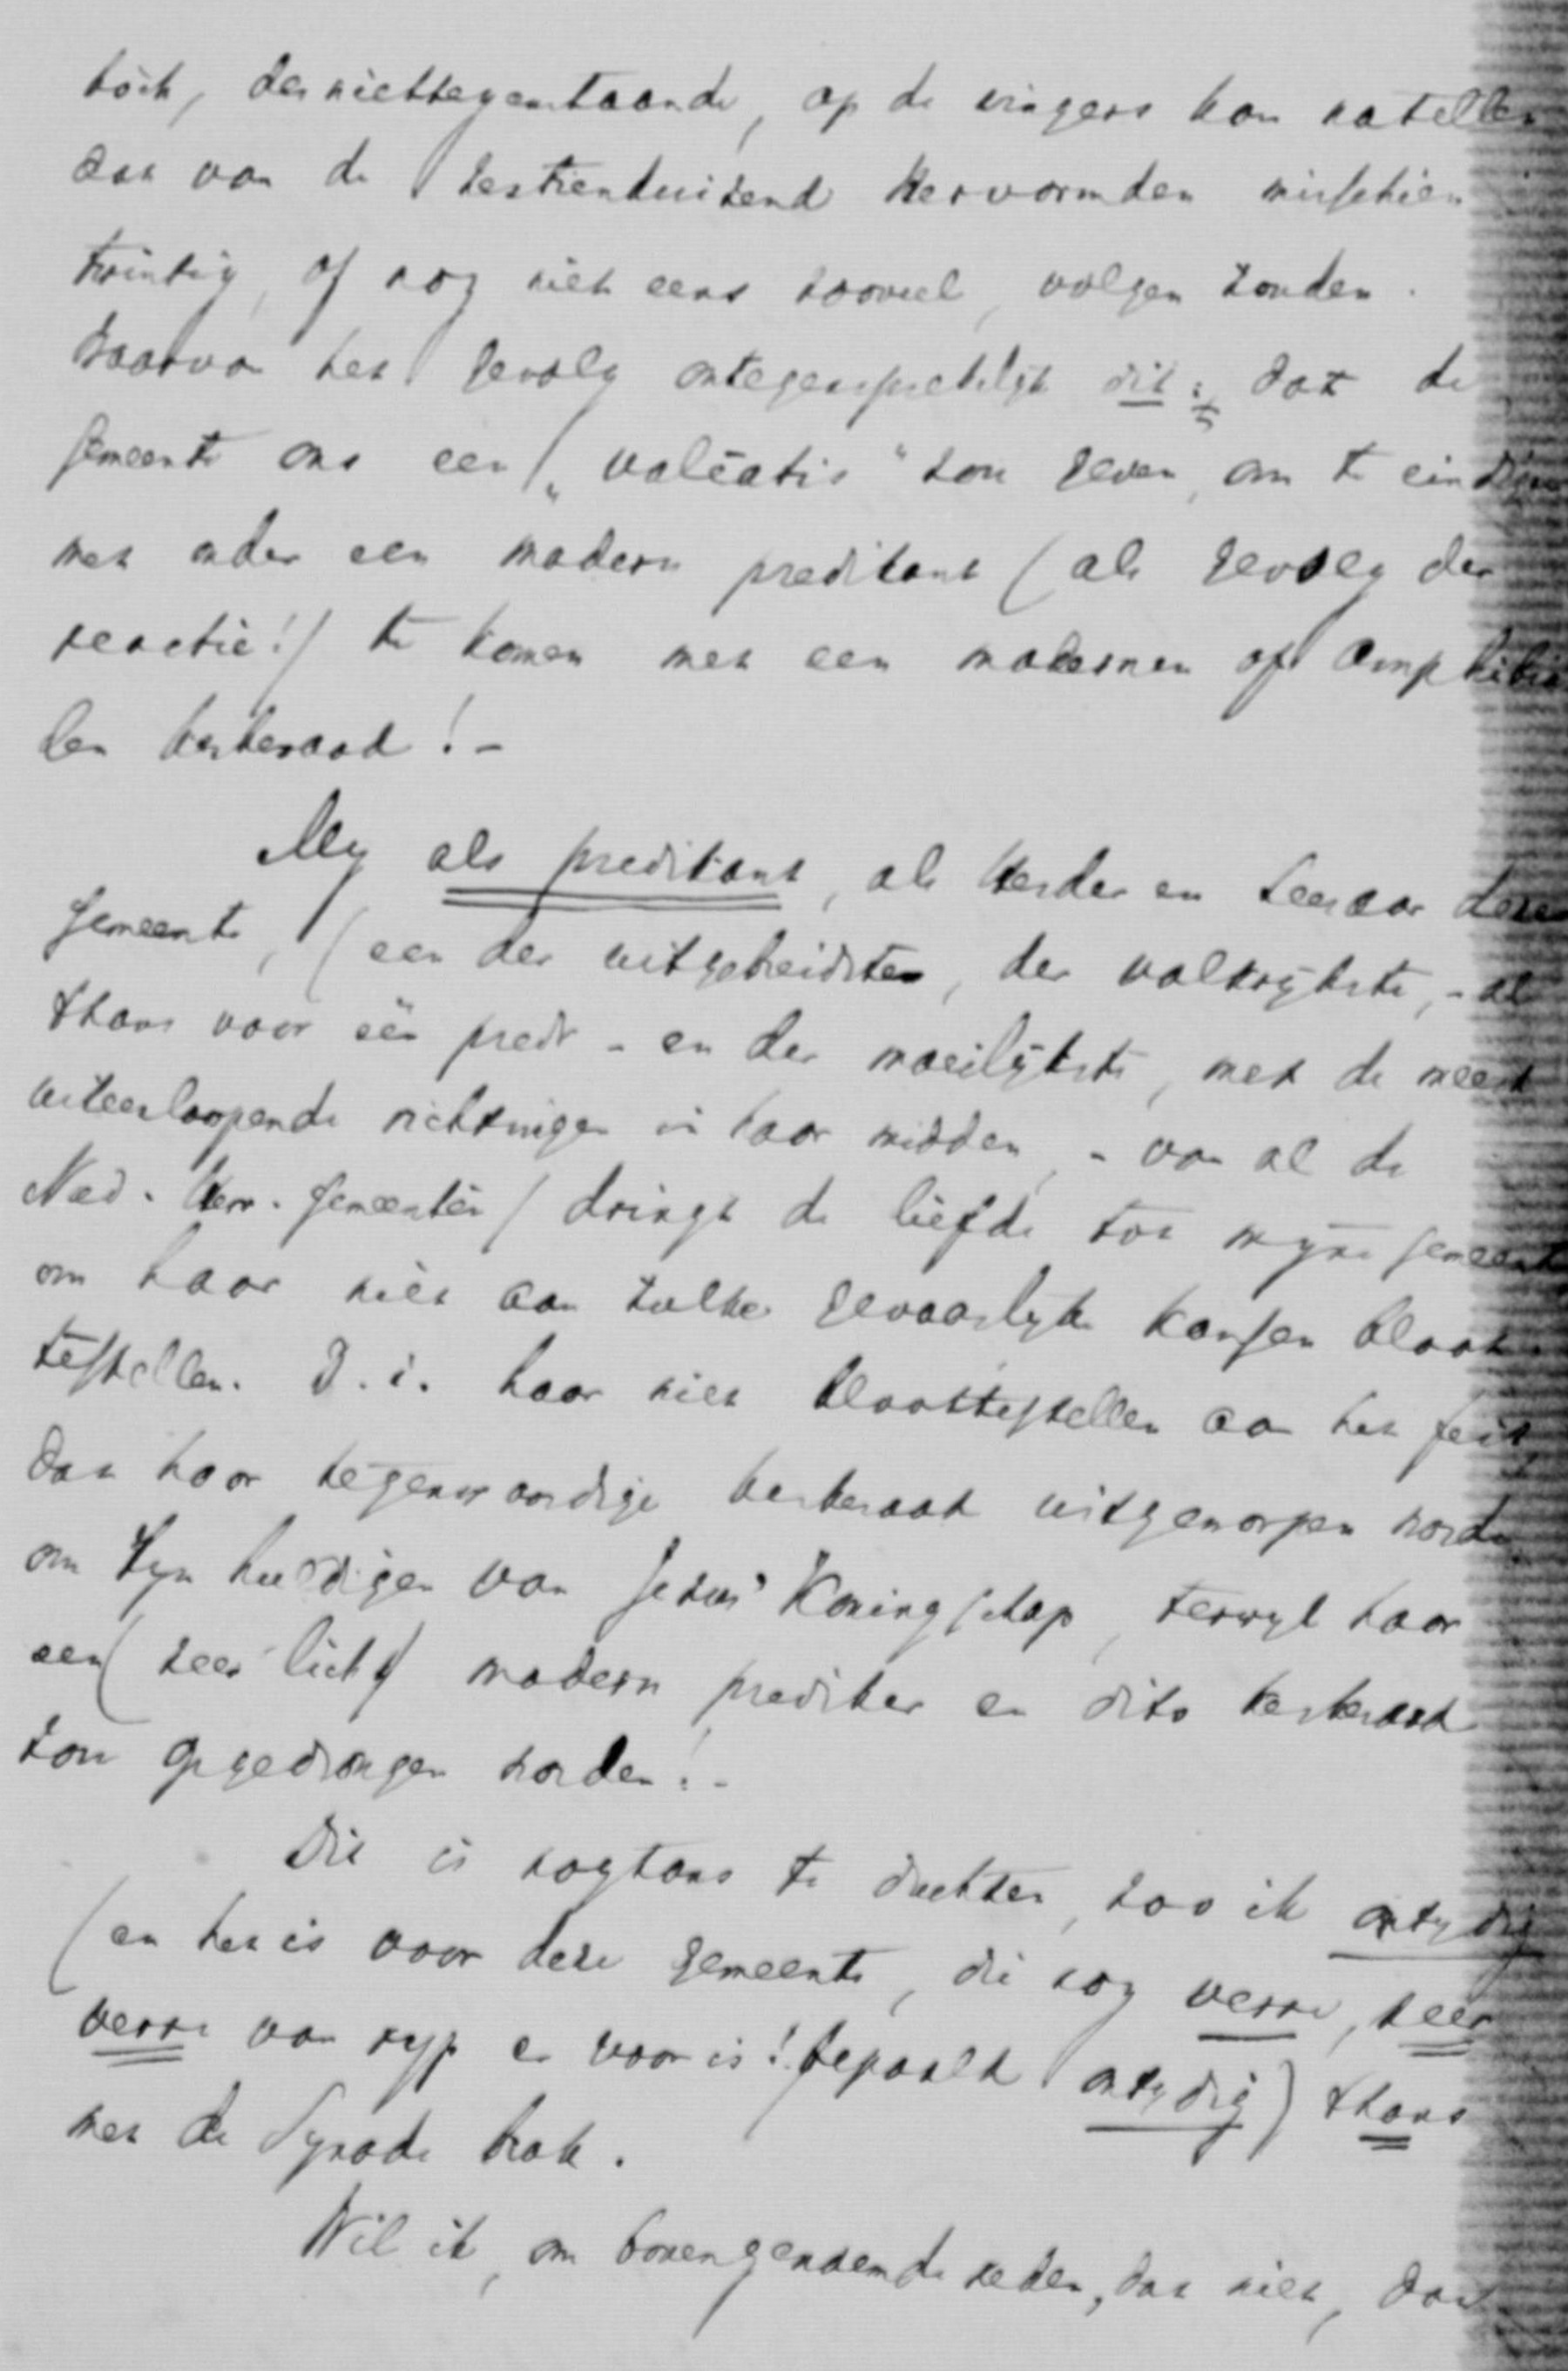 tóch, des niettegenstaande, op de vingers kan natellen
dat van de zestienduizend Hervormden misschien
twintig, of nog niet eens zooveel, volgen zouden.
Waarvan het gevolg ontegensprekelijk dit: dat de
gemeente ons een „valéatis" zou geven, om te eindigen
met onder een modern predikant (als gevolg der
reactie!) te komen met een modernen of amphibie
len kerkeraad! -
My als predikant, als Herder en Leeraar dezer
gemeente, (een der uitgebreidsten, der volkrijkste, - al
thans voor één predt - en der moeilijkste, met de meest
uiteenloopende richtingen in haar midden, - van al de
Ned. Herv. gemeenten) dringt de liefde tot myne gemeente
om haar niet aan zulke gevaarlyke kansen bloot
testellen. D.i. haar niet bloottestellen aan het feit,
dat haar tegenwoordige kerkeraad uitgeworpen worde
om zyn huldigen van Jezus' Koningschap, terwyl haar
een (zeer licht) modern prediker en dito kerkeraad
zou opgedrongen worden! -
Dit is nogtans te duchten, zoo ik ontydig
(en het is voor deze gemeente, die nog verre, zeer
verre van ryp er voor is! bepaald ontydig) thans
met de Synode brak.
Wil ik, om bovengenoemde reden, dat niet, dan